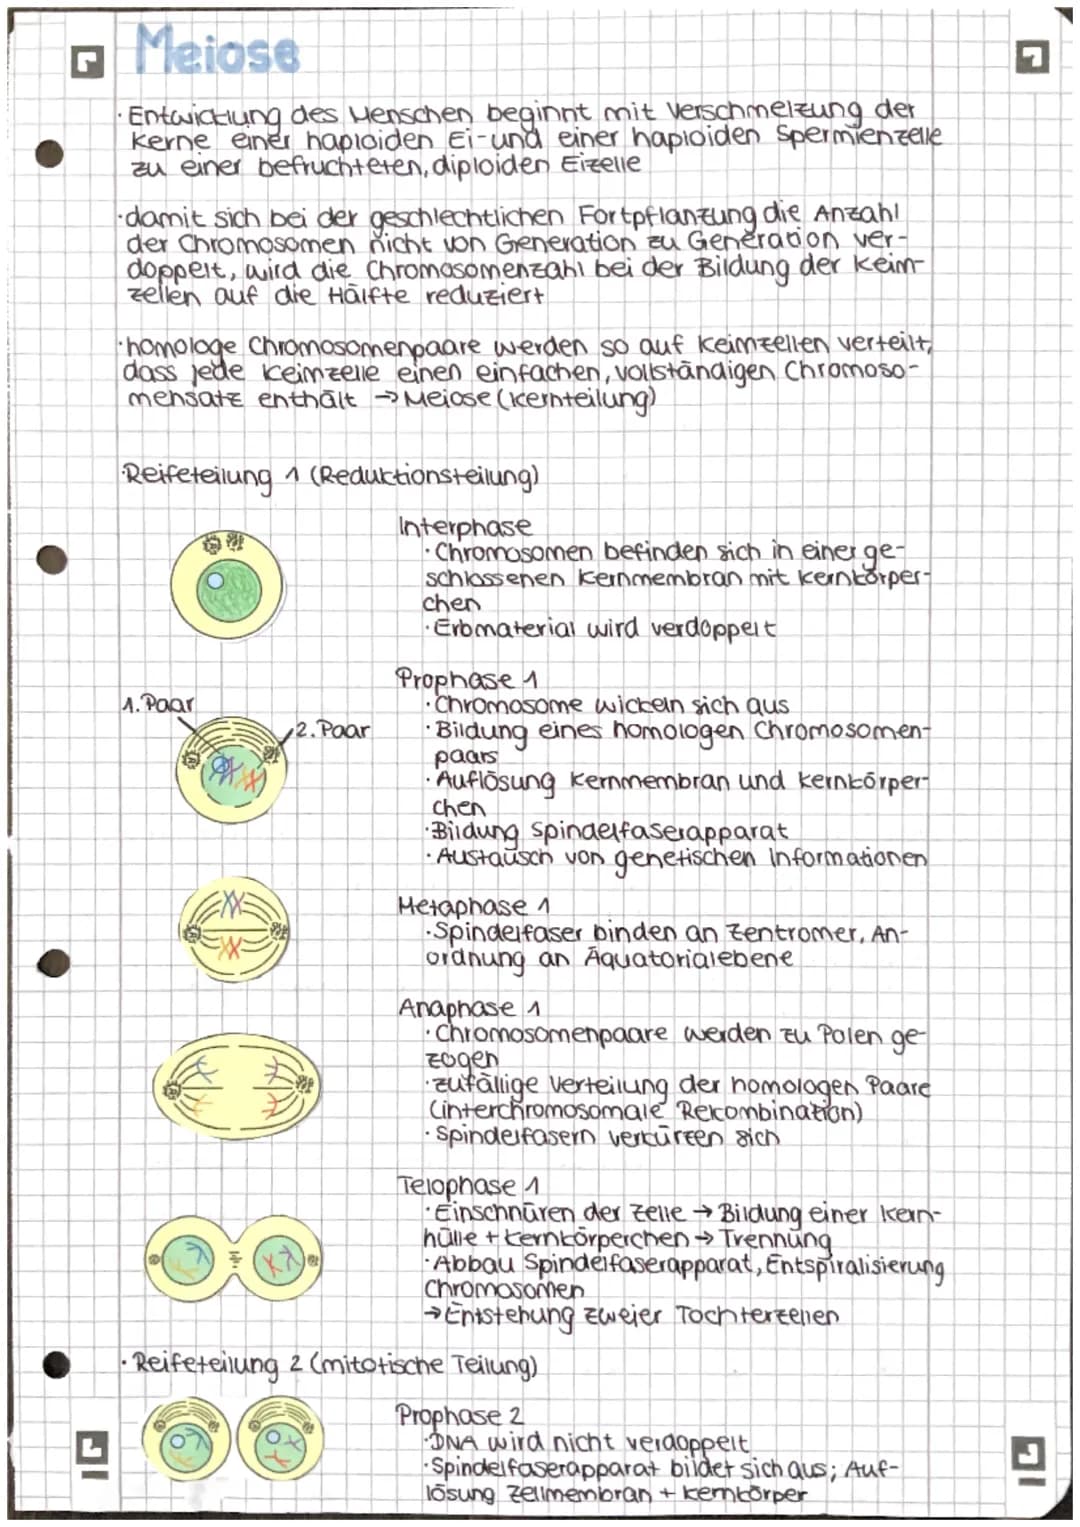 Meiose
· Entwicklung des Menschen beginnt mit Verschmelzung der
Kerne einer haploiden Ei- und einer haploiden Spermienzelle
zu einer befruchteten, diploiden Eizelle
· damit sich bei der geschlechtlichen Fortpflanzung die Anzahl
der Chromosomen nicht von Generation zu Generation ver-
doppelt, wird die Chromosomenzahl bei der Bildung der Keim-
zellen auf die Hälfte reduziert
· homologe Chromosomenpaare werden so auf Keimzellen verteilt,
dass jede Keimzelle einen einfachen, vollständigen Chromoso-
mensatz enthält → Meiose (Kernteilung)
· Reifeteilung 1 (Reduktionsteilung)
Interphase
· Chromosomen befinden sich in einer ge-
schlossenen Kernmembran mit Kernkörper-
chen
· Erbmaterial wird verdoppelt
Prophase 1
1. Paar
· Chromosome wickeln sich aus
2. Paar
· Bildung eines homologen Chromosomen-
paars
· Auflösung Kernmembran und Kernkörper-
chen
· Bildung Spindelfaserapparat
· Austausch von genetischen Informationen
Metaphase 1
· Spindelfaser binden an Zentromer, An-
ordnung an Äquatorialebene
Anaphase 1
· Chromosomenpaare werden zu Polen ge-
zogen
· zufällige Verteilung der homologen Paare
(interchromosomale Rekombination)
· Spindelfasern verkürzen sich
Telophase 1
· Einschnüren der Zelle → Bildung einer Kern-
hülle + Kernkörperchen → Trennung
· Abbau Spindelfaserapparat, Entspiralisierung
Chromosomen
→ Entstehung zweier Tochterzellen
· Reifeteilung 2 (mitotische Teilung)
Prophase 2
· DNA wird nicht verdoppelt
· Spindelfaserapparat bildet sich aus; Auf-
lösung Zellmembran + Kernkörper